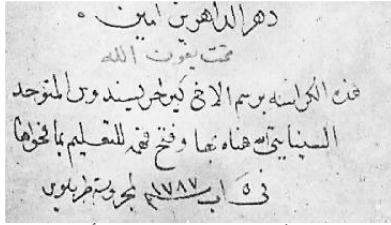 دهر الداهرين امين ه
تمت بعون الله
هذه الكراسه برسم الاخ كير المتوحد
السينايتي الله هناه بها وفتح فهمه للتعليم بما فحواها
في ٥ اب سنة ١٧٨٧م طرابلوس